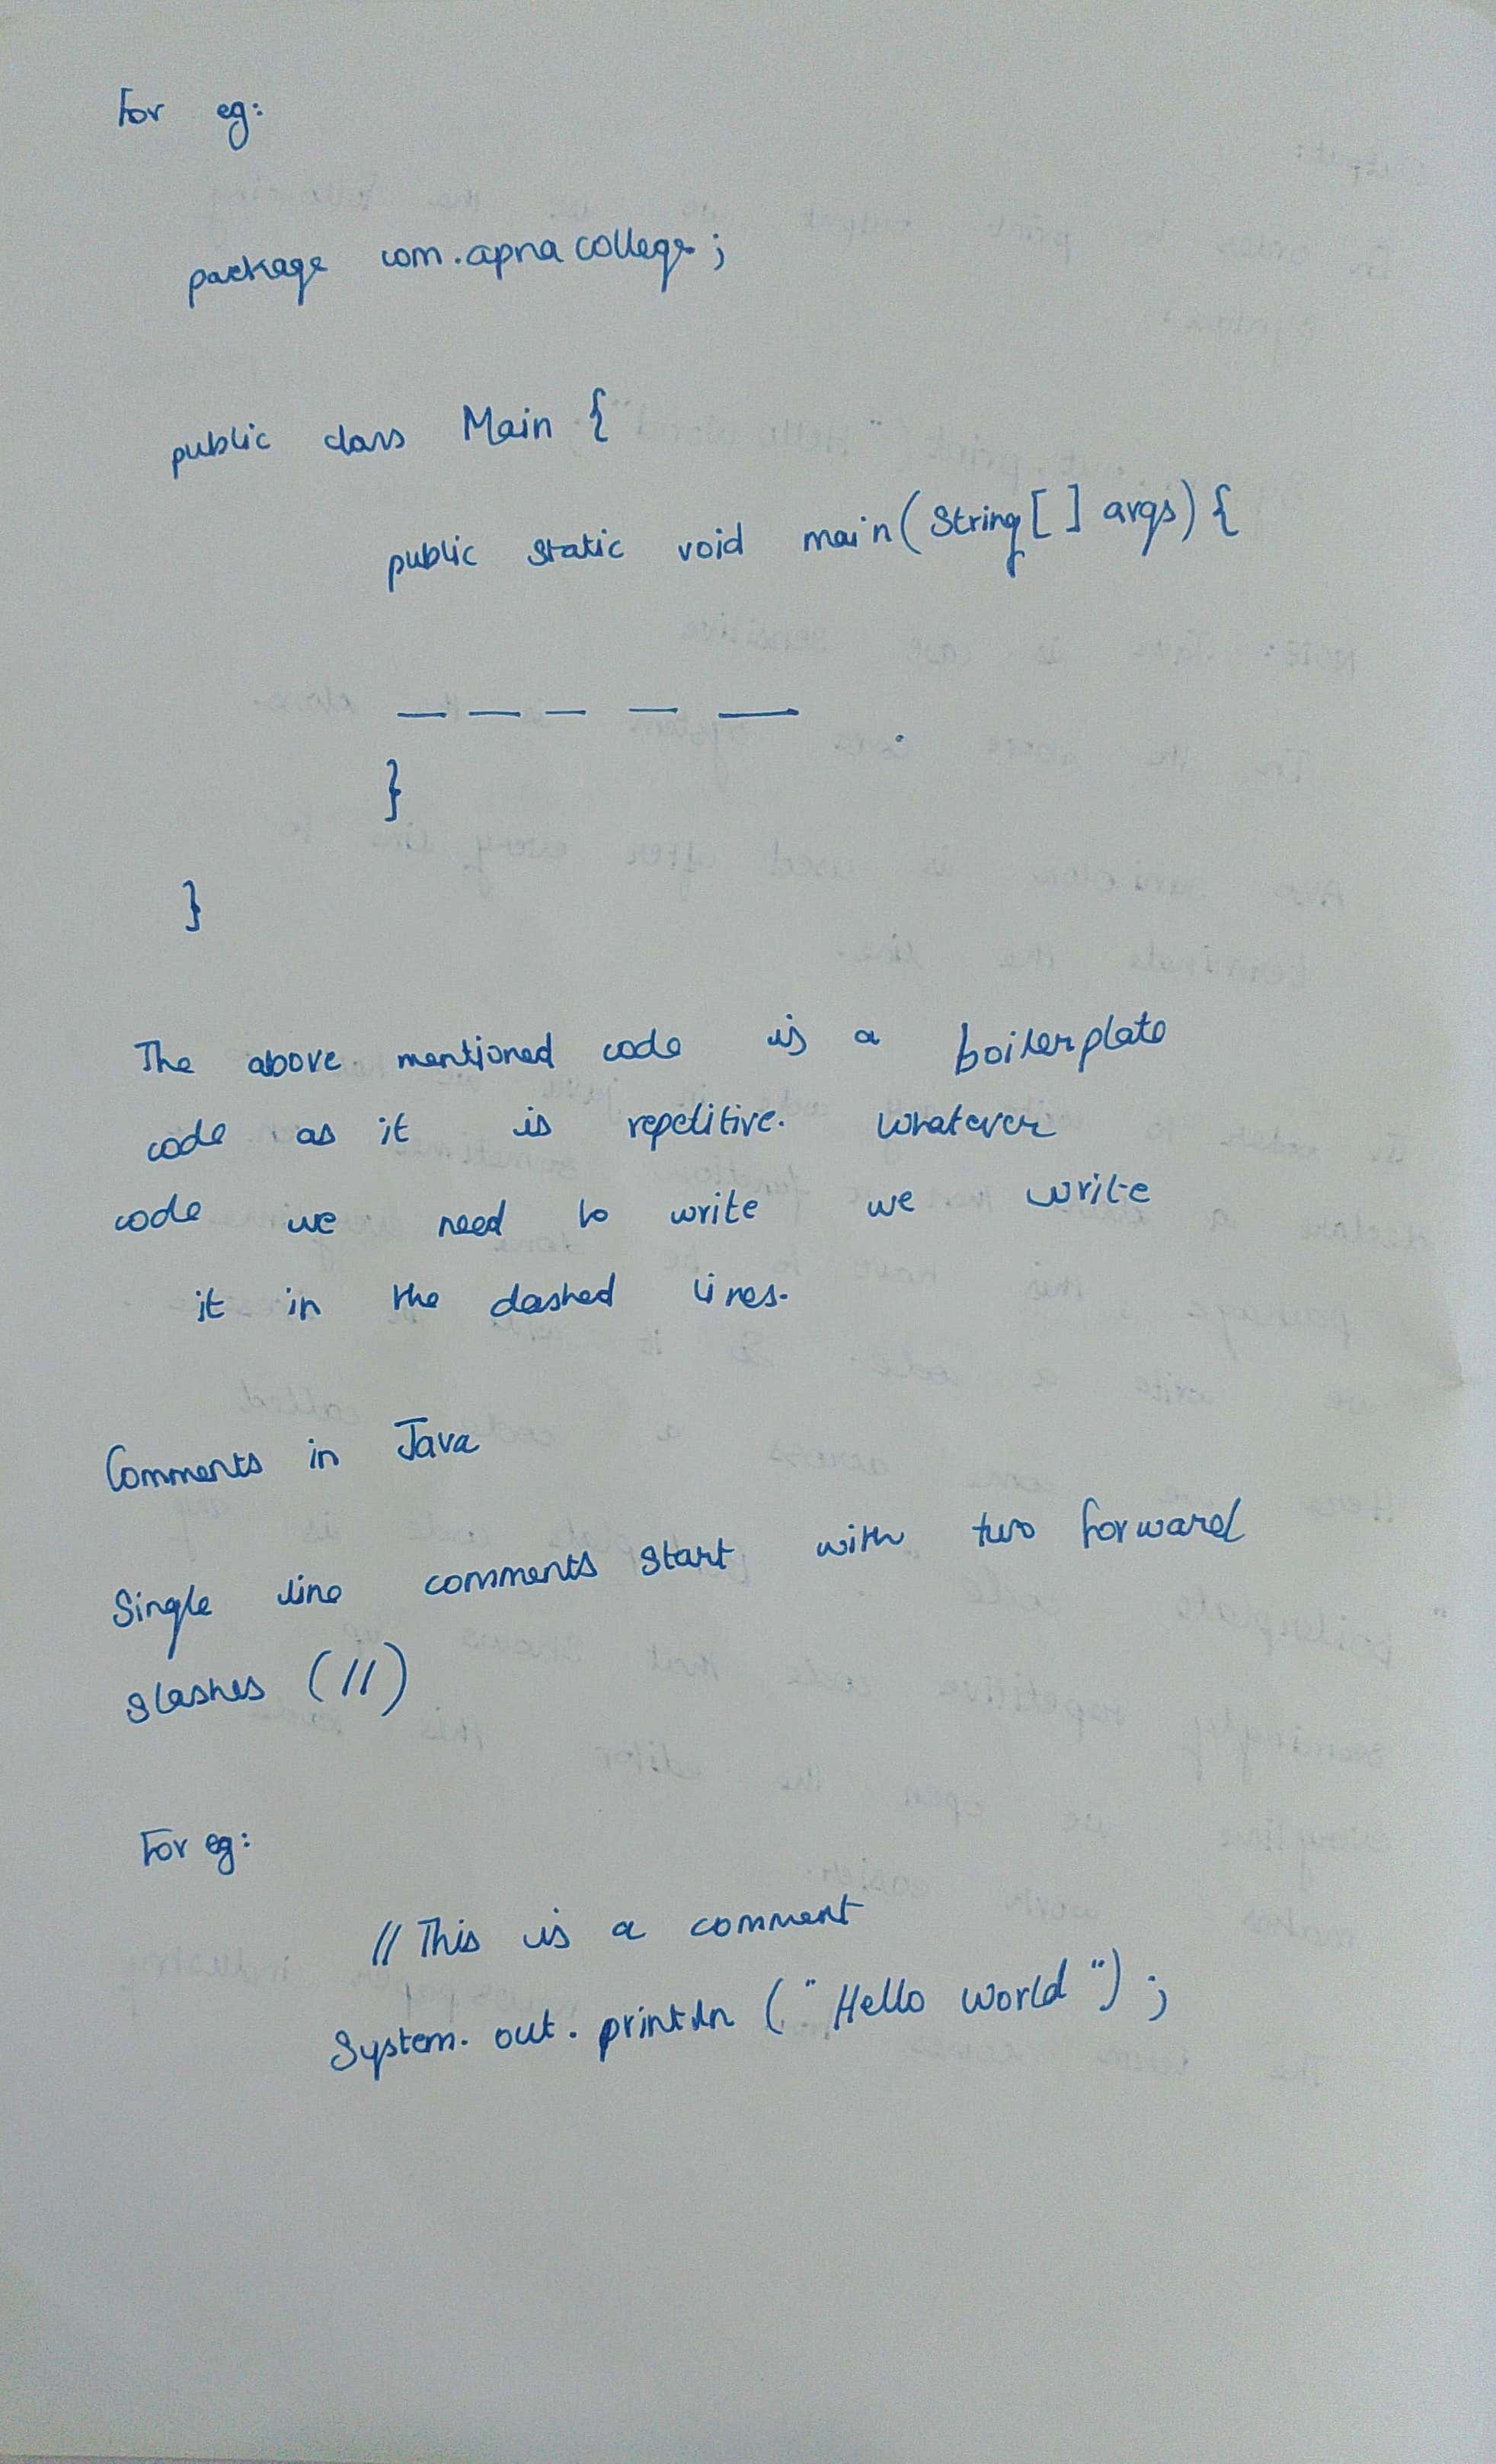 For eg:
package com.apnacollege;
public class Main {
public static void main(String[ ] args) {
— — — — —
}
}
The above mentioned code is a boilerplate
code as it is repetitive. Whatever
code we need to write we write
it in the dashed lines.
Comments in Java
Single line comments start with two forward
slashes (//)
For eg:
// This is a comment
System. out. println ("Hello world");